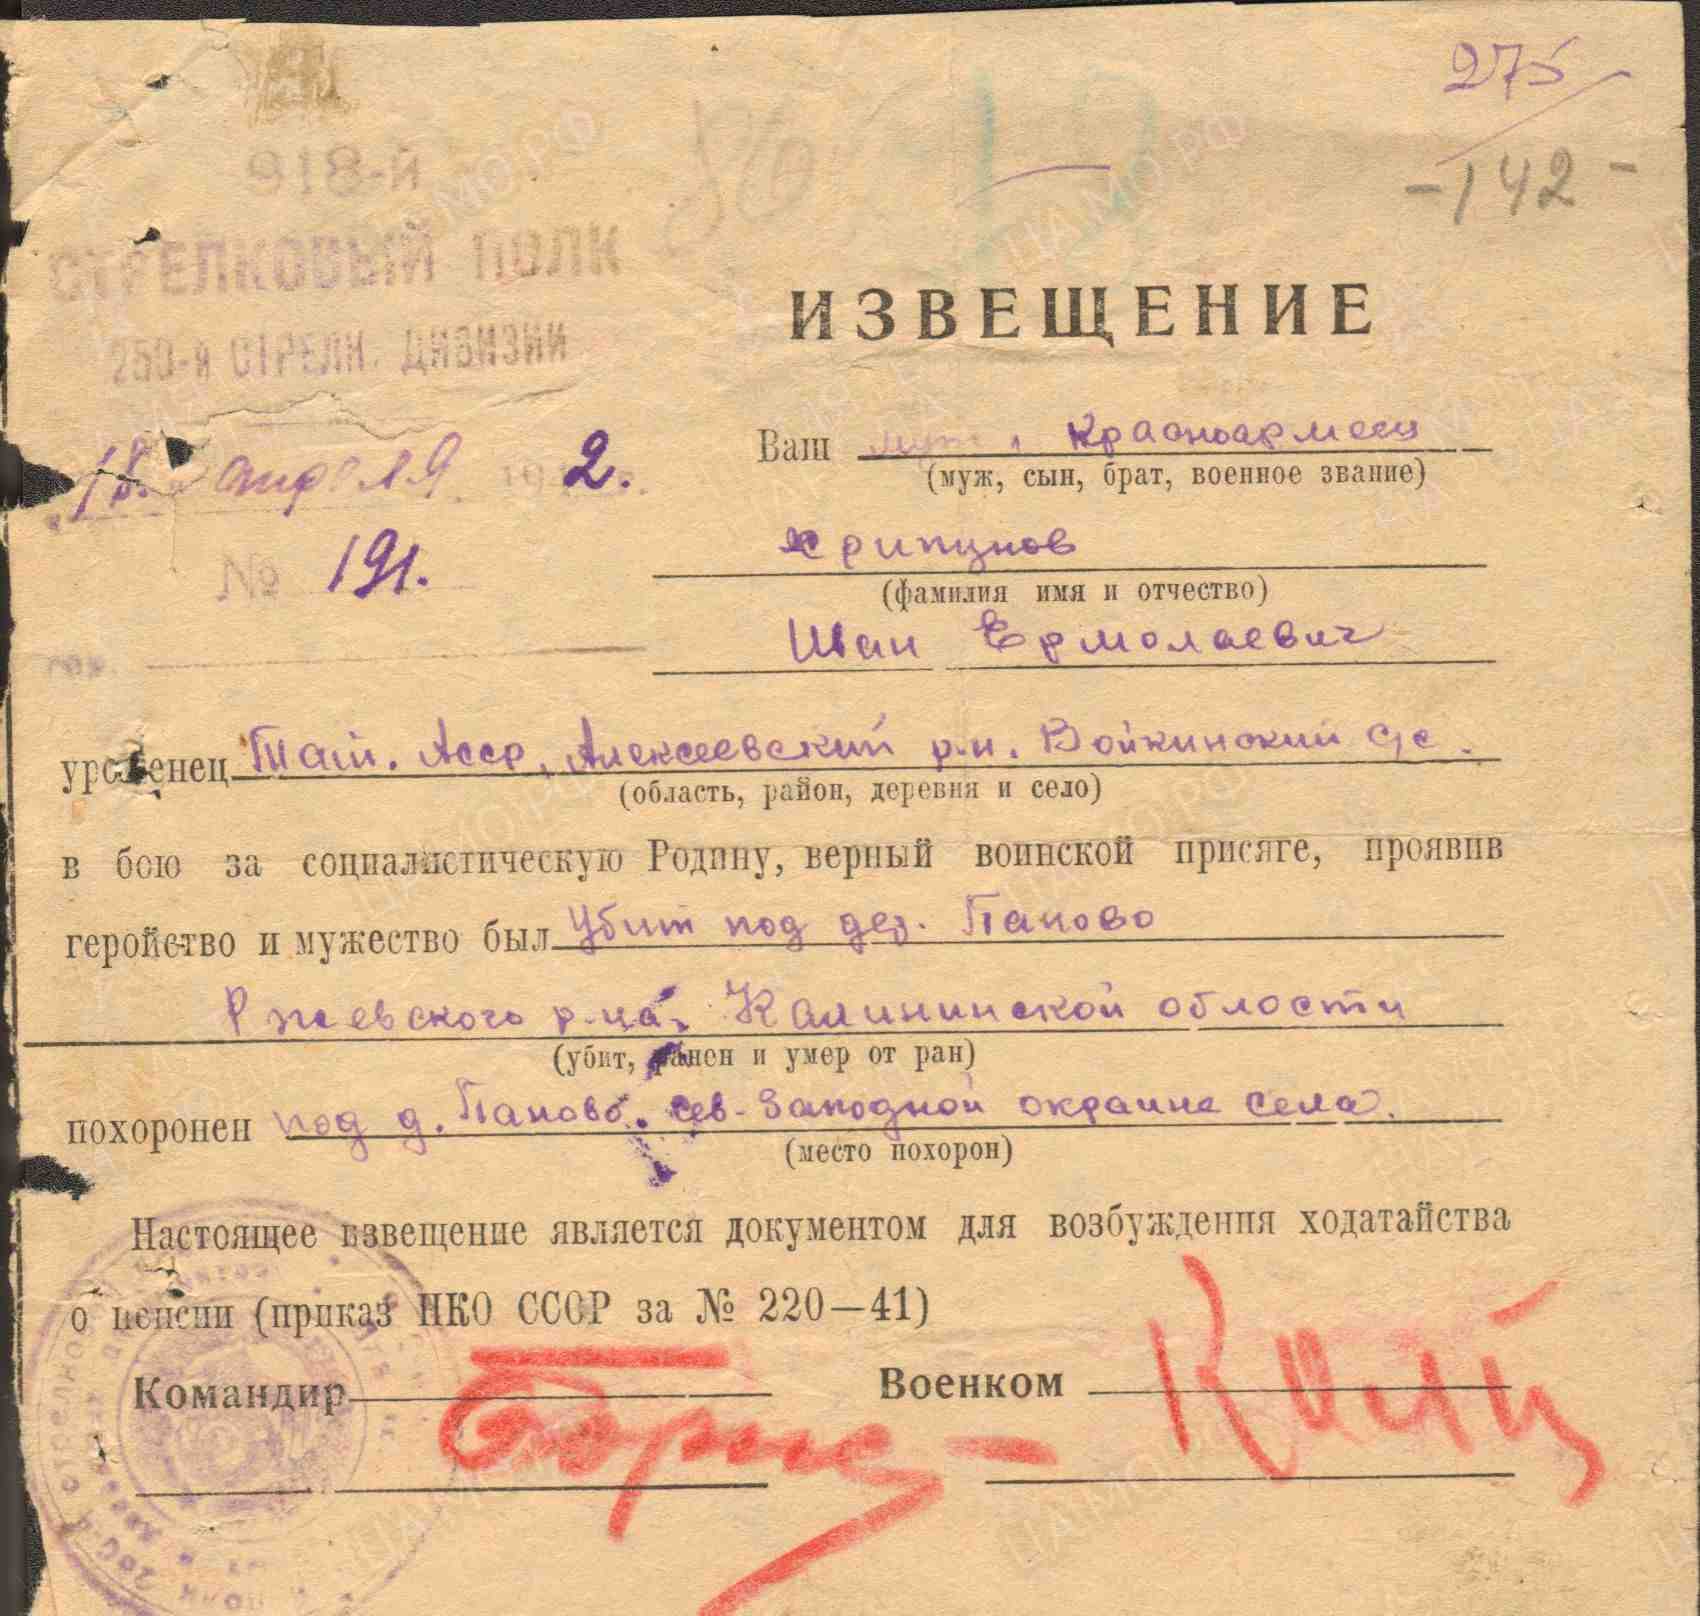 275
-142-
918-й
СТРЕЛКОВЫЙ ПОЛК
250-й СТРЕЛК. ДИВИЗИИ
18. апреля 1942.
№ 191.
гор.
ИЗВЕЩЕНИЕ
Ваш муж, красноармеец
(муж, сын, брат, военное звание)
Хрипунов
(фамилия имя и отчество)
Иван Ермолаевич
уроженец Тат. Асср, Алексеевский р-н. Войкинский с/с.
(область, район, деревня и село)
в бою за социалистическую Родину, верный воинской присяге, проявив
геройство и мужество был убит под дер. Паново
Ржевского р-на, Калининской области
(убит, ранен и умер от ран)
похоронен под д. Паново, сев-западной окраине села.
(место похорон)
Настоящее извещение является документом для возбуждения ходатайства
о пенсии (приказ НКО СССР за № 220—41)
Командир
Военком